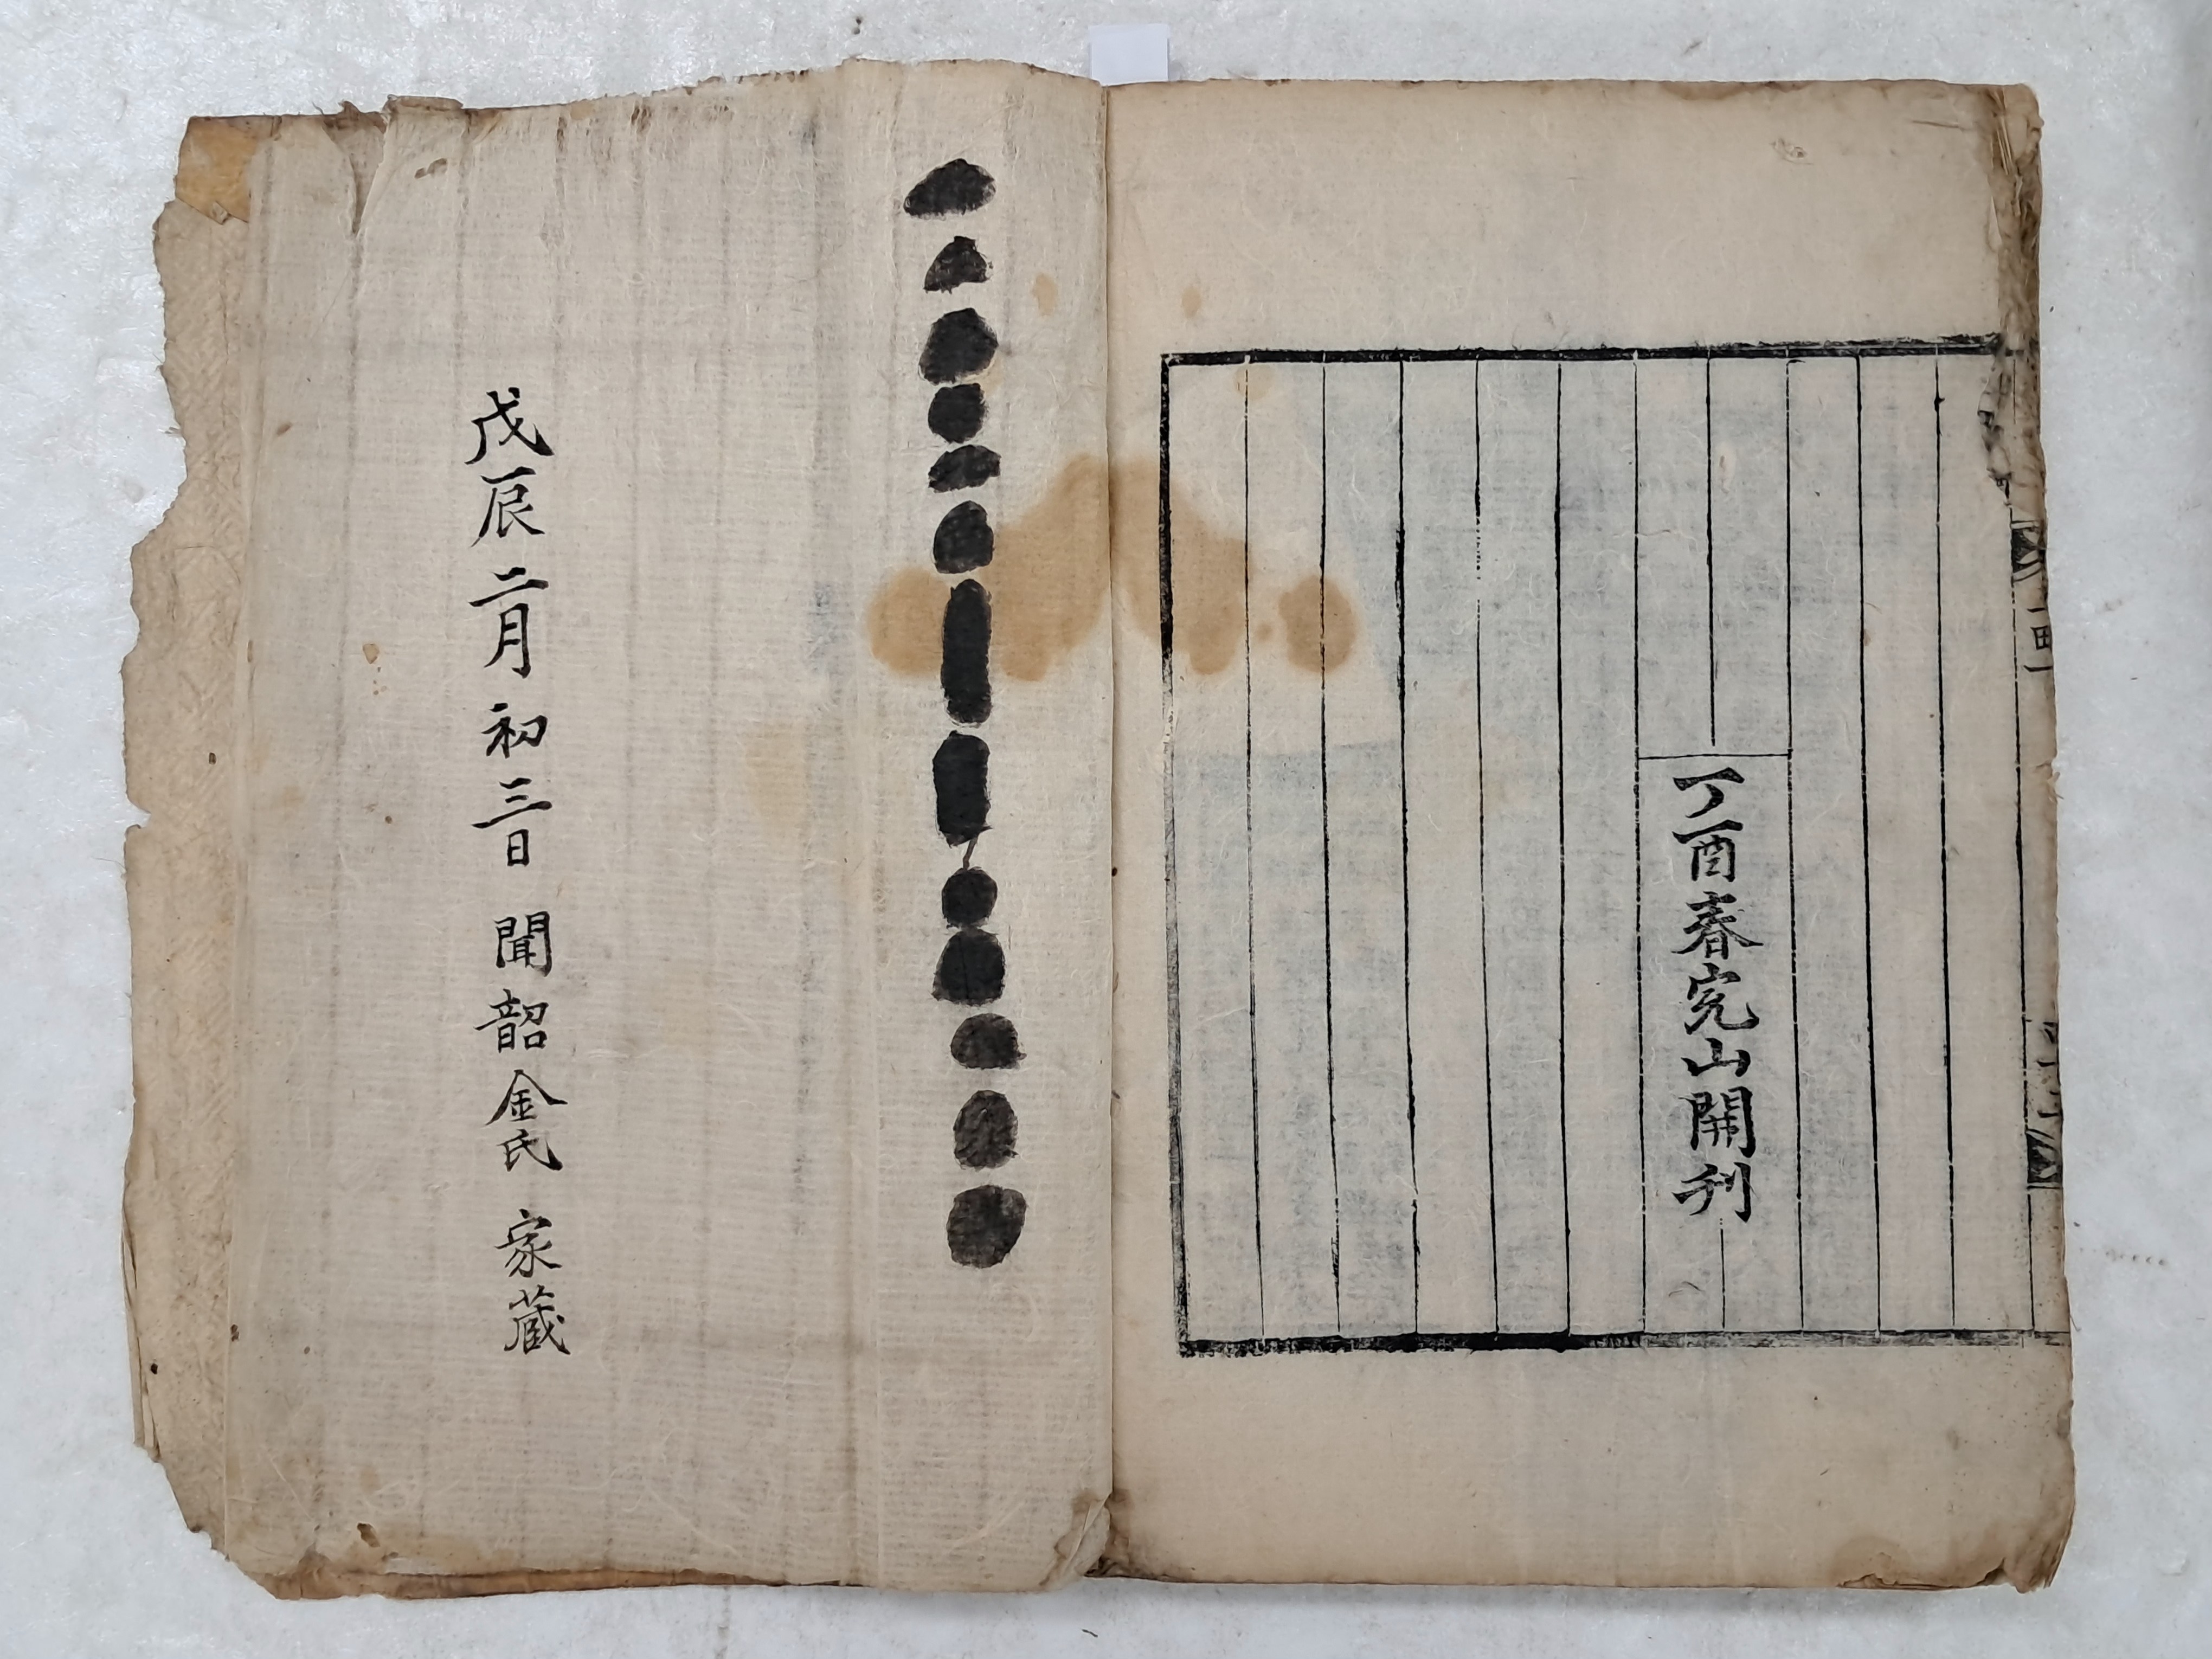 丁酉春完山開刊
戊辰二月初三日 聞韶金氏 家藏